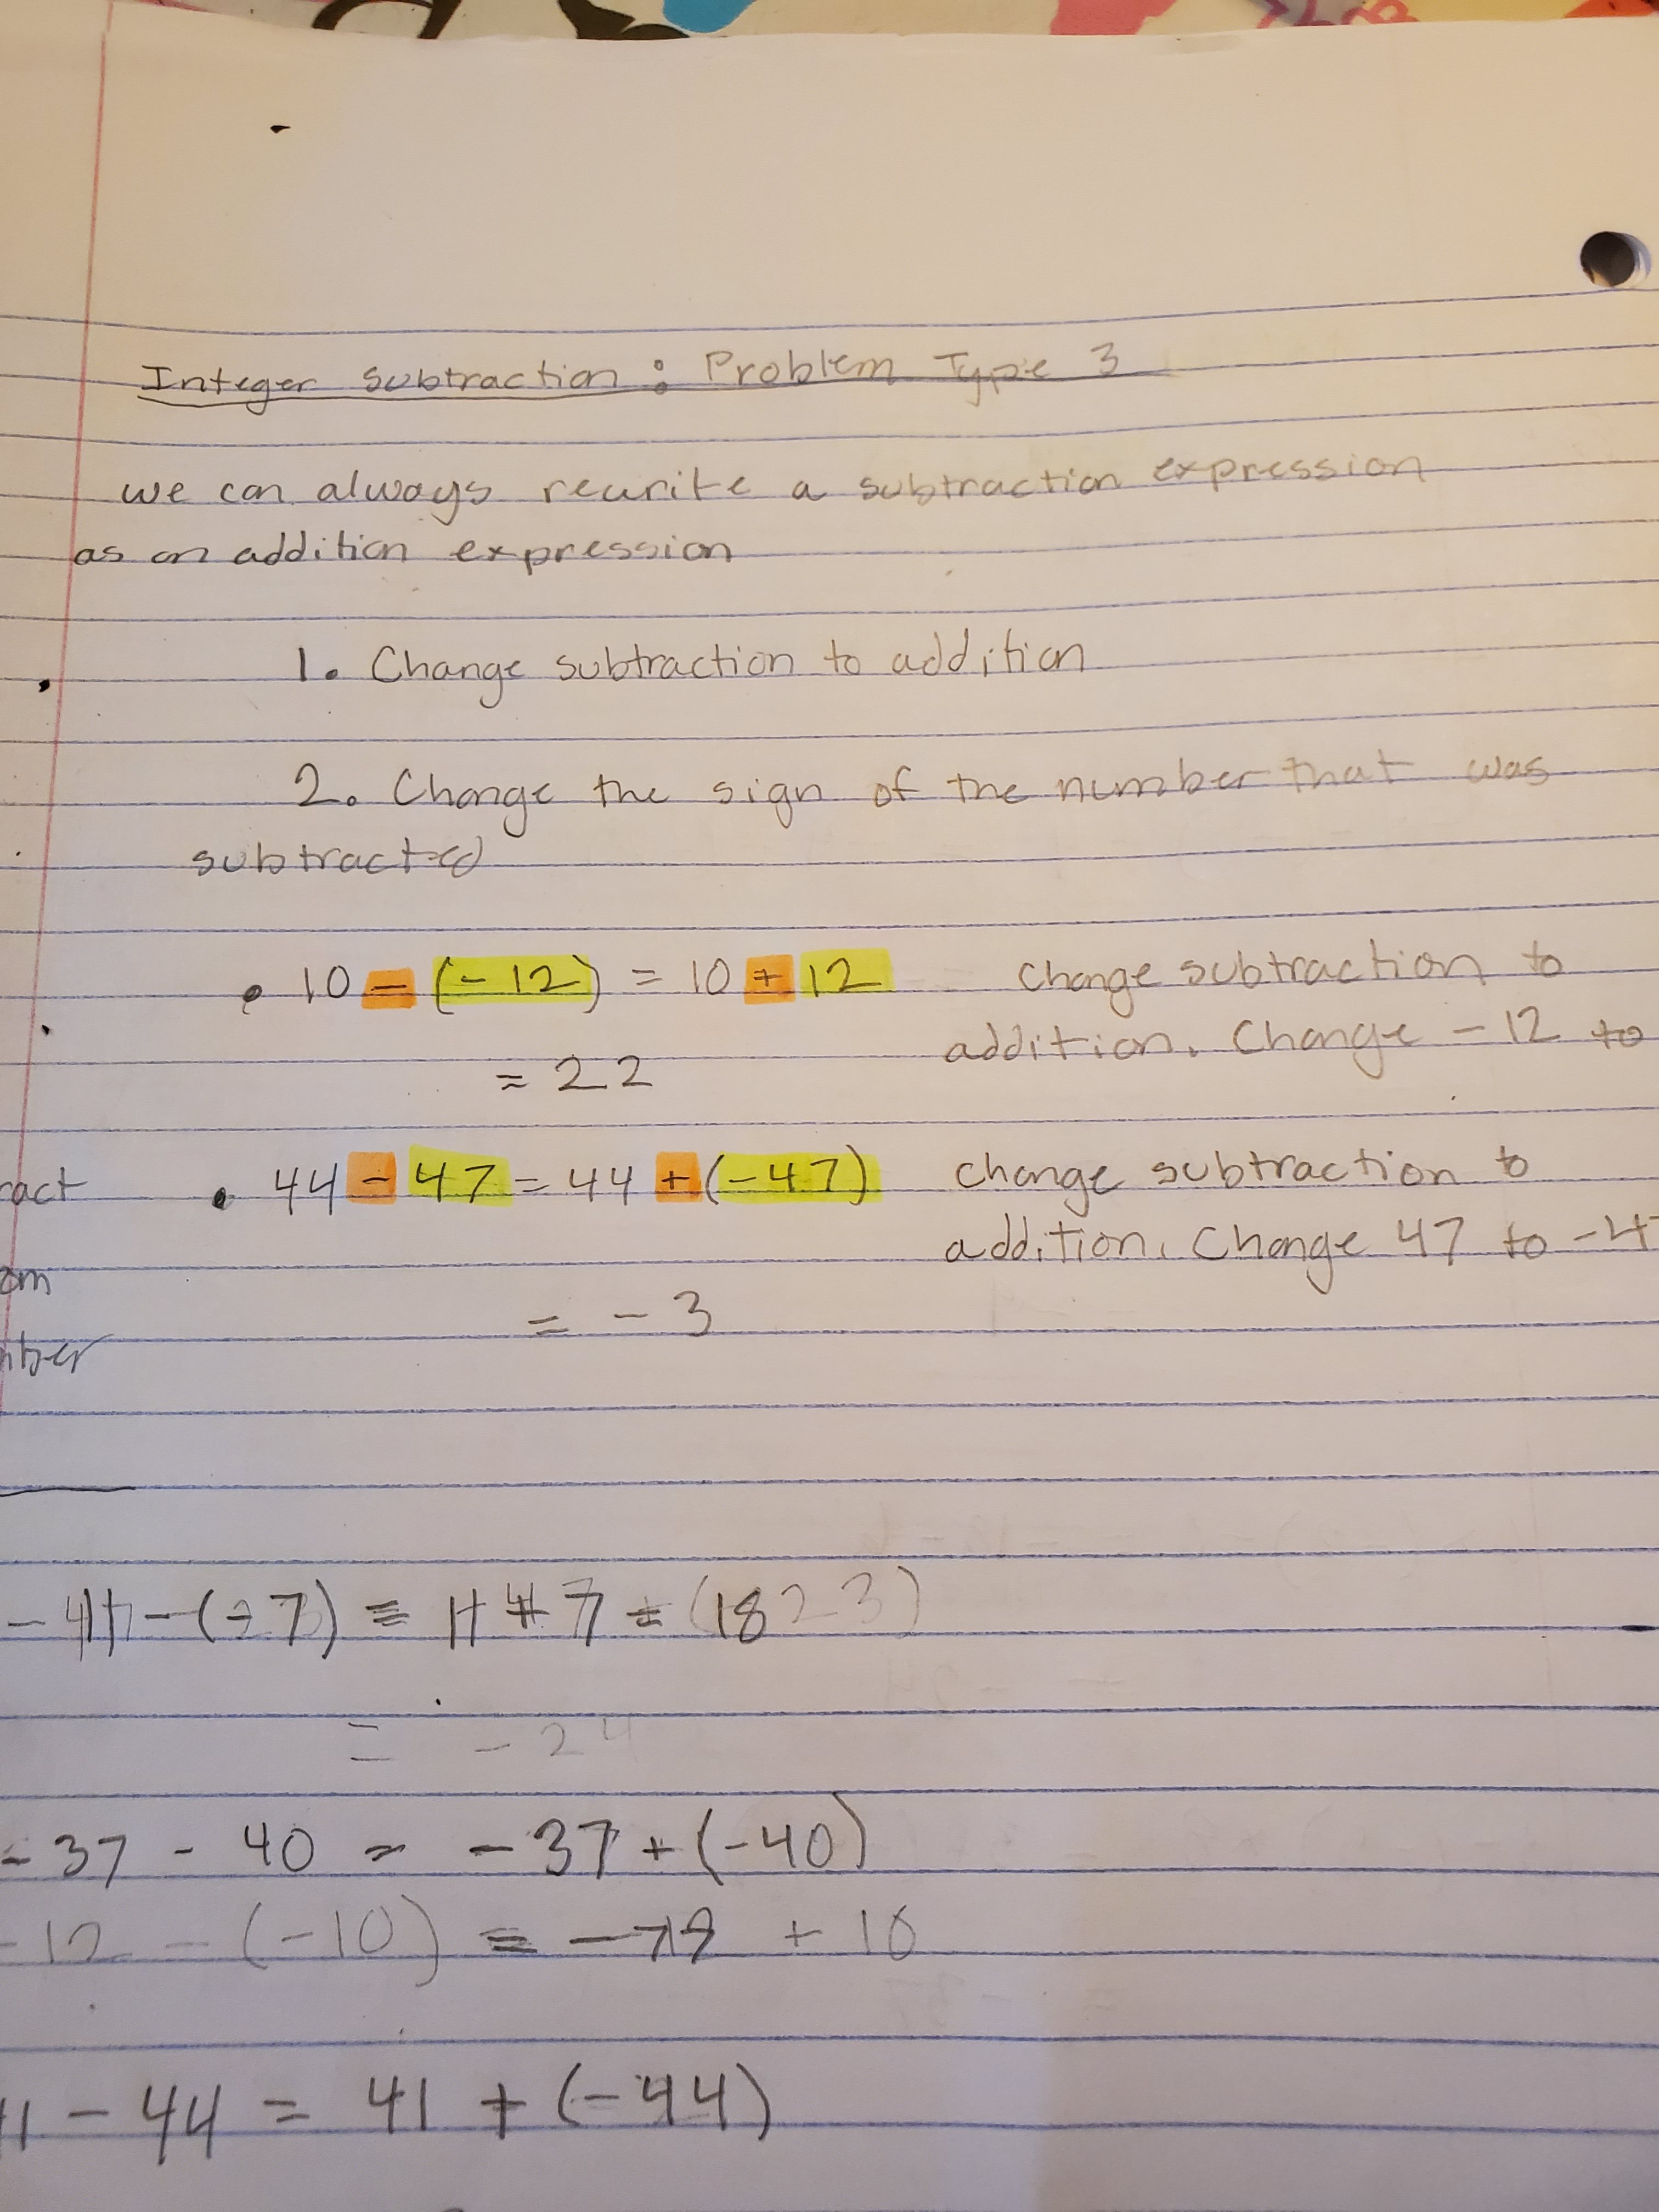 Integer subtraction: Problem Type 3
we can always rewrite a subtraction expression
as an addition expression
1. Change subtraction to addition
2. Change the sign of the number that was
subtracted
• 10 - (-12) = 10 + 12 Change subtraction to
addition. Change -12 to
= 22
ract • 44 - 47 = 44 + (-47) Change subtraction to
addition. Change 47 to -4
om
= -3
mber
= -24
-37 - 40 = -37 + (-40)
-12 - (-10) = + 10
- 44 = 41 + (-44)